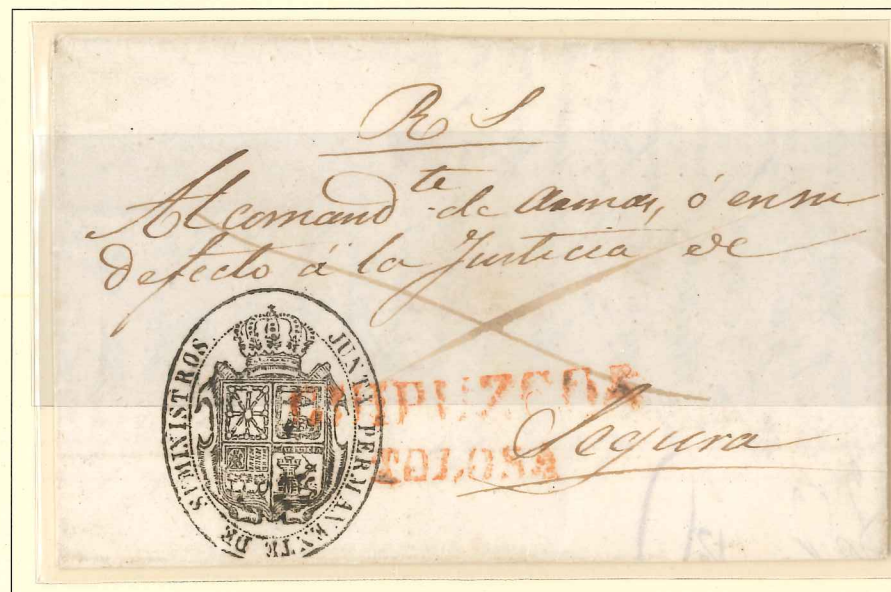 R S
Al comand te de Armas, ó en su
defecto á la Justicia de
JUNTA PERMANENTE DE SUMINISTROS
GUIPUZCOA
TOLOSA
Segura